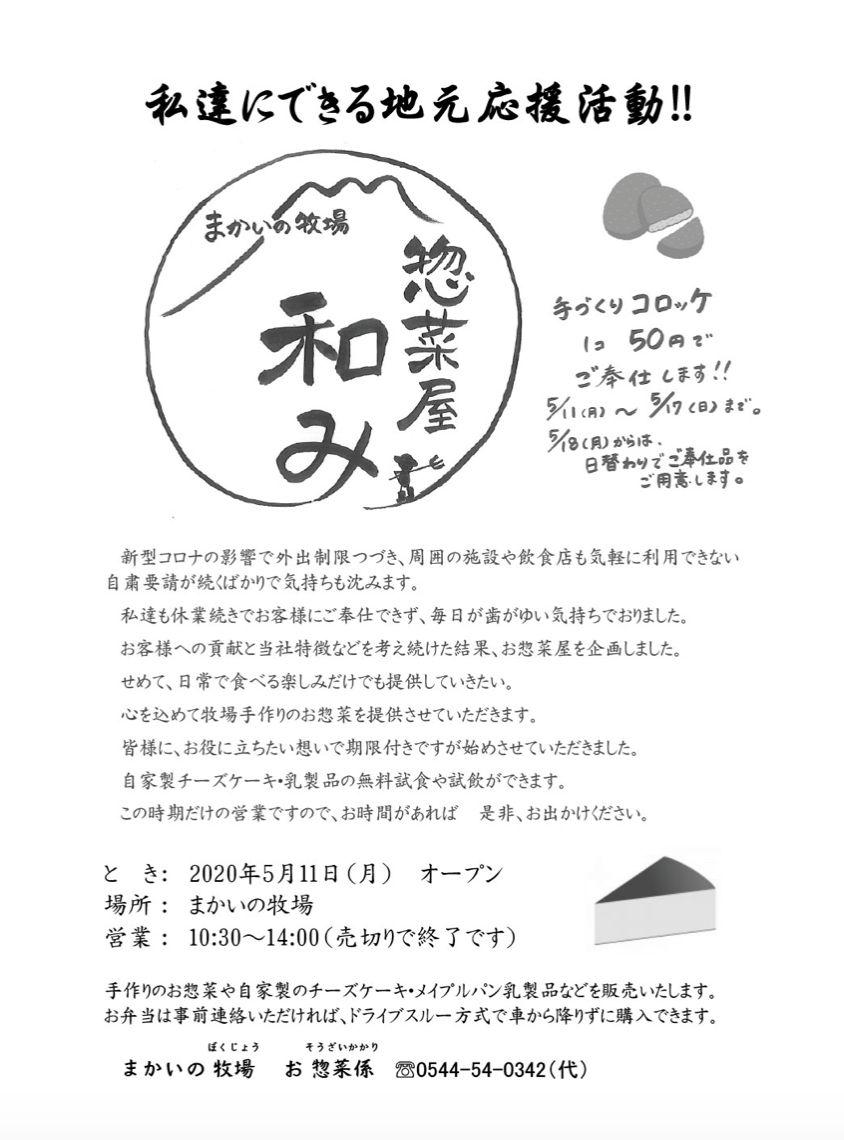 私達にできる地元応援活動!!
まかいの牧場
惣菜屋
和み
手づくりコロッケ
1コ 50円で
ご奉仕します!!
5/11(月)～5/17(日)まで。
5/18(月)からは、
日替わりでご奉仕品を
ご用意します。
新型コロナの影響で外出制限つづき、周囲の施設や飲食店も気軽に利用できない
自粛要請が続くばかりで気持ちも沈みます。
私達も休業続きでお客様にご奉仕できず、毎日が歯がゆい気持ちでおりました。
お客様への貢献と当社特徴などを考え続けた結果、お惣菜屋を企画しました。
せめて、日常で食べる楽しみだけでも提供していきたい。
心を込めて牧場手作りのお惣菜を提供させていただきます。
皆様に、お役に立ちたい想いで期限付きですが始めさせていただきました。
自家製チーズケーキ・乳製品の無料試食や試飲ができます。
この時期だけの営業ですので、お時間があれば　是非、お出かけください。
と　き：　2020年5月11日（月）　オープン
場所：　まかいの牧場
営業：　10:30～14:00（売切りで終了です）
手作りのお惣菜や自家製のチーズケーキ・メイプルパン乳製品などを販売いたします。
お弁当は事前連絡いただければ、ドライブスルー方式で車から降りずに購入できます。
ぼくじょう　そうざいかかり
まかいの牧場　お惣菜係　☏0544-54-0342（代）